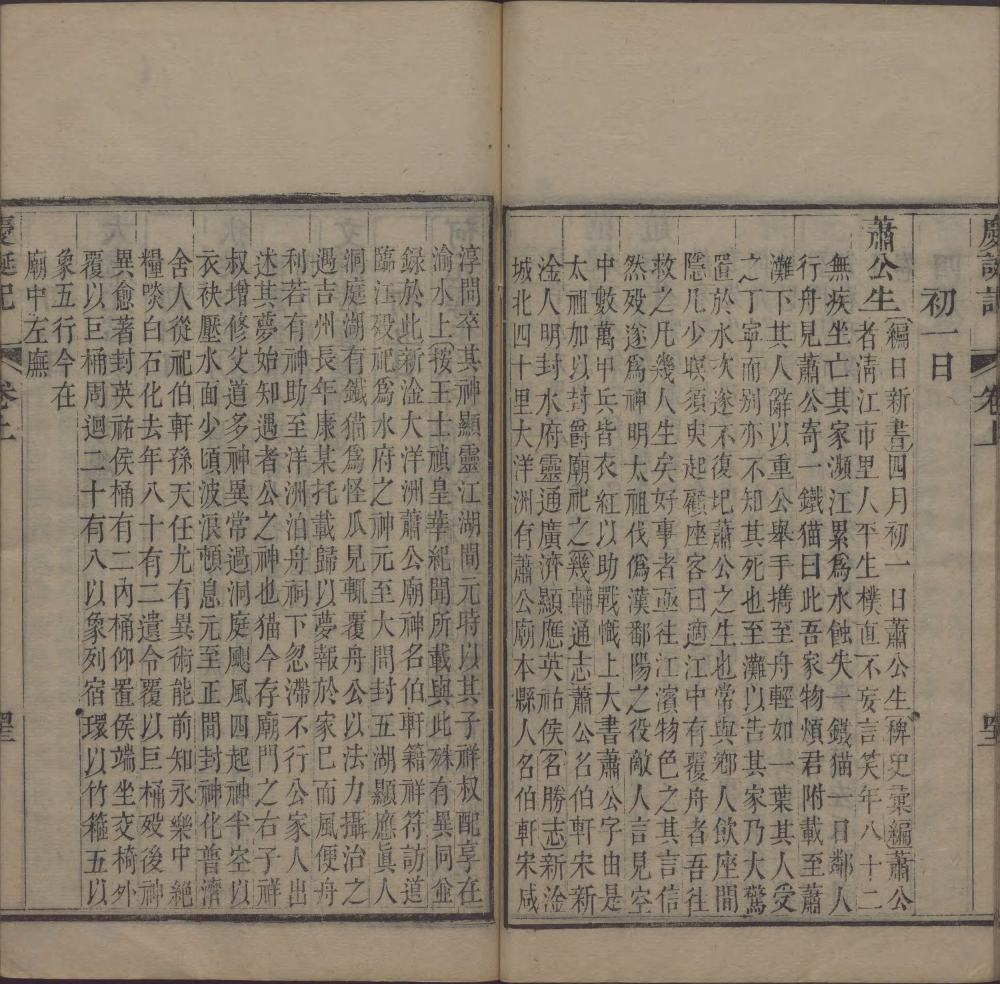 慶誕記
卷上
聖
初一日
蕭公生
編日新書四月初一日蕭公生稗史彙編蕭公
者淸江市里人平生樸直不妄言笑年八十二
無疾坐亡其家瀕江累爲水蝕失一鐵猫一日鄰人
行舟見蕭公寄一鐵猫曰此吾家物煩君附載至蕭
灘下其人辭以重公舉手擕至舟輕如一葉其人受
之丁寧而別亦不知其死也至灘以吿其家乃大驚
置於水次遂不復圮蕭公之生也常與鄉人飲座間
隱几少暝須臾起顧座客曰適江中有覆舟者吾往
救之凡幾人生矣好事者亟往江濱物色之其言信
然歿遂爲神明太祖伐僞漢鄱陽之役敵人言見空
中數萬甲兵皆衣紅以助戰幟上大書蕭公字由是
太祖加以封爵廟祀之幾輔通志蕭公名伯軒宋新
淦人明封水府靈通廣濟顯應英祐侯名勝志新淦
城北四十里大洋洲有蕭公廟本縣人名伯軒宋咸
淳間卒其神顯靈江湖間元時以其子祥叔配享在
渝水上按王士禎皇華紀聞所載與此殊有異同並
錄於此新淦大洋洲蕭公廟神名伯軒籍祥符訪道
臨江歿祀爲水府之神元至大間封五湖顯應眞人
洞庭湖有鐵猫爲怪瓜見輒覆舟公以法力攝治之
過吉州長年康某托載歸以夢報於家巳而風便舟
利若有神助至洋洲泊舟祠下忽滯不行公家人出
述其夢始知遇者公之神也猫今存廟門之右子祥
叔增修父道多神異常過洞庭颶風四起神半空以
衣袂壓水面少頃波浪頓息元至正間封神化普濟
舍人從祀伯軒孫天任尤有異術能前知永樂中絕
糧啖白石化去年八十有二遺令覆以巨桶歿後神
異愈著封英祐侯桶有二內桶仰置侯端坐交椅外
覆以巨桶周迴二十有八以象列宿環以竹箍五以
象五行今在
廟中左廡
慶誕記
卷上
聖